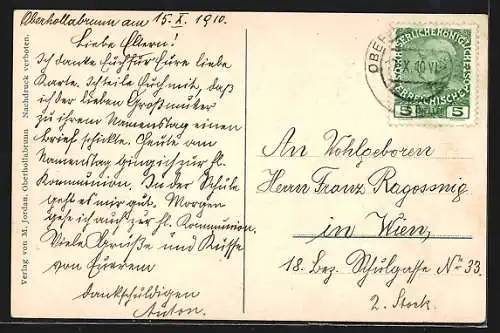 Oberhollabrunn am 15.X.1910.
Liebe Eltern!
Ich danke Euch für Eure liebe
Karte. Ich teile Euch mit, daß
ich der lieben Großmutter
zu ihrem Namenstag einen
Brief schickte. Heute am
Namenstag ging ich zur hl.
Kommunion. In der Schule
geht es mir gut. Morgen
gehe ich auch zur hl. Kommunion.
Viele Grüße und Küsse
von Euerem
dankschuldigen
Anton.
Verlag von M. Jordan, Oberhollabrunn Nachdruck verboten.
OBER
X. 10 VI
5 5
An Wohlgeboren
Herrn Franz Ragossnig
in Wien,
18. Bez. Schulgasse No 33.
2. Stock.